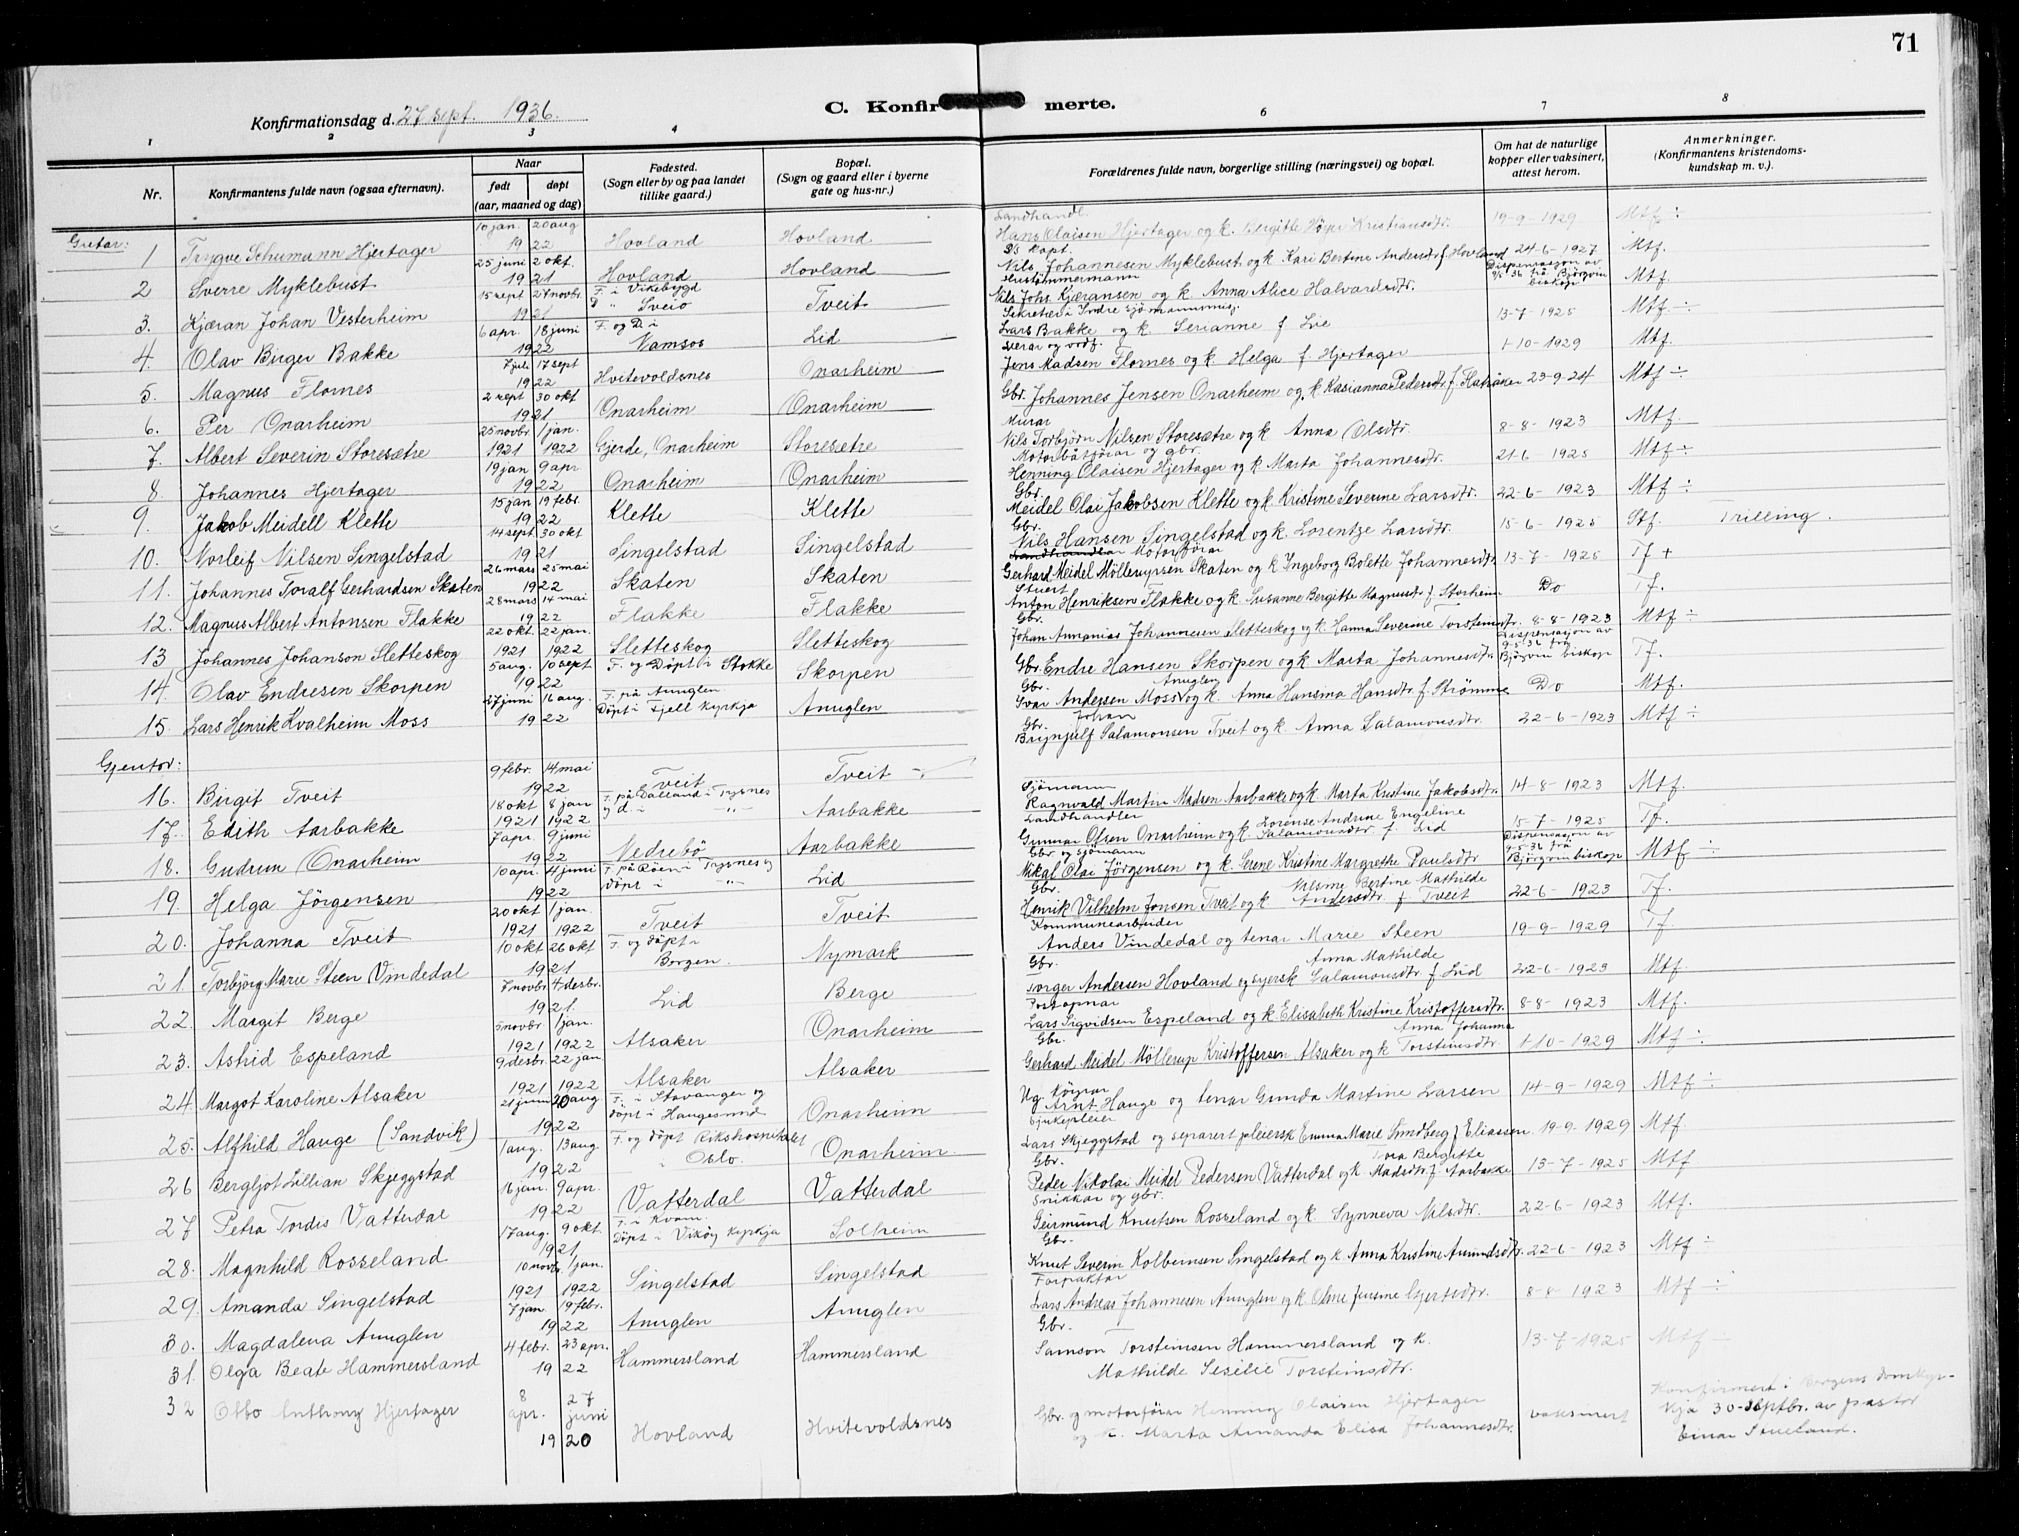 71
Konfirmationsdag d. 27 sept. 1936.
C. Konfirmerte.
1 2 3 4 6 7 8
Nr. Konfirmantens fulde navn (ogsaa efternavn). Naar født døpt (aar, maaned og dag) Fødested. (Sogn eller by og paa landet tillike gaard.) Bopæl. (Sogn og gaard eller i byerne gate og hus-nr.) Forældrenes fulde navn, borgerlige stilling (næringsvei) og bopæl. Om hat de naturlige kopper eller vaksinert, attest herom. Anmerkninger. (Konfirmantens kristendomskundskap m. v.).
Gutar:
1 Trygve Schumann Hjertager 10 jan. 20 aug 1922 Hovland Hovland Landhandl. Hans Olaisen Hjertager og k. Bergitte Kristiansdtr. 19-9-1929 Mtf ÷
2 Sverre Myklebust 25 juni 2 okt. 1921 Hovland Hovland Ds kapt. Nils Johannesen Myklebust og k Kari Bertine Andersdtr f. Hovland 24-6-1927 Mtf.
3. Kjæran Johan Vesterheim 15 sept 27 novbr. 1921 F. i Vikebygd D " Sveio Tveit Hustömmermann Nils Johs. Kjæransen og k. Anna Alice Halvardsdtr. Dispensasjon av 9/5 36 frå Bjørgvin biskop Mtf.
4. Olav Birger Bakke 6 apr. 18 juni 1922 F. og D. i Namsos Lid Sekretær i Indre sjömannsmisj. Lars Bakke og k. Serianne f. Lie 13-7-1925 Mtf. ÷
5. Magnus Flornes 7 juli 17 sept 1922 Hvitevoldsnes Onarheim Lærar og ordf. Jens Madsen Flornes og k. Helga f. Hjertager 1-10-1929 Mtf.
6. Per Onarheim 2 sept 30 okt 1921 Onarheim Onarheim Gbr. Johannes Jensen Onarheim og k Kasianna Pedersdtr f. Haktåker 23-9-24 Mtf ÷
7. Albert Severin Storesætre 25 novbr. 1 jan. 1921 1922 Gjerde, Onarheim Storesætre Murar Nils Torbjörn Nilsen Storesætre og k Anna Olsdtr. 8-8-1923 Mtf.
8 Johannes Hjertager 19 jan 9 apr. 1922 Onarheim Onarheim Motorbåtförar og gbr. Henning Olaisen Hjertager og k Marta Johannesdtr. 21-6-1925 Mtf ÷
9. Jakob Meidell Klette 15 jan 19 febr. 1922 Klette Klette Gbr. Meidel Olai Jakobsen Klette og k Kristine Severine Larsdtr. 22-6-1923 Mtf ÷
10. Norleif Nilsen Singelstad 14 sept. 30 okt 1921 Singelstad Singelstad Gbr. Nils Hansen Singelstad og k. Lorentze Larsdtr. 15-6-1925 Stf. Trilling.
11. Johannes Toralf Gerhardsen Skaten 26 mars 25 mai 1922 Skaten Skaten Landhandlar Motorförar Gerhard Meidel Möllerupsen Skaten og k Ingeborg Bolette Johannesdtr. 13-7-1925 Tf +
12. Magnus Albert Antonsen Flakke 28 mars 14 mai 1922 Flakke Flakke Stuert Anton Henriksen Flakke og k. Susanne Bergitte Magnusdtr f. Storheim Do Tf.
13 Johannes Johanson Sletteskog 22 okt. 22 jan. 1921 1922 Sletteskog Sletteskog Gbr. Johan Annanias Johannesen Sletteskog og k. Hanna Severine Torsteinsdtr. 8-8-1923 Mtf ÷
14. Olav Endresen Skorpen 5 aug. 10 sept. 1922 F. og Döpt i Stokke Skorpen Gbr. Endre Hansen Skorpen og k Marta Johannesdtr. Dispensasjon av 9-5-36 frå Bjørgvin biskop Tf.
15. Lars Henrik Kvalheim Moss 27 juni 16 aug. 1922 F. på Anuglen Döpt i Fjell kyrkja Anuglen Gbr. Ivar Andersen Moss Anuglen og k. Anna Hansina Hansdtr. f. Strömme Do Mtf.
Gjentor:
16. Birgit Tveit 9 febr. 14 mai 1922 Tveit Tveit Gbr. Johan Brynjulf Salamonsen Tveit og k. Anna Salamonsdtr. 22-6-1923 Mtf ÷
17. Edith Aarbakke 18 okt 8 jan 1921 1922 F. på Dalland i Tysnes og d. i " Aarbakke Sjömann Ragnvald Martin Madsen Aarbakke og k. Marta Kristine Jakobsdtr. 14-8-1923 Mtf.
18. Gudrun Onarheim 7 apr. 9 juni 1922 Nedrebö Aarbakke Landhandler Gunnar Olsen Onarheim og k. Lorense Andrine Engeline Salamonsdtr. f. Lid 15-7-1925 Tf.
19. Helga Jörgensen 10 apr. 4 juni 1922 F. på Röen i Tysnes og Döpt i " Lid Gbr og sjömann Nikal Olai Jörgensen og k. Serene Kristine Margrethe Paulsdtr Dispensasjon av 9-5-36 frå Bjørgvin biskop Mtf ÷
20. Johanna Tveit 20 okt 1 jan. 1921 1922 Tveit Tveit Gbr. Henrik Vilhelm Jonsen Tveit og k Nilsine Bertine Mathilde Andersdtr. f. Tveit 22-6-1923 Tf.
21. Torbjörg Marie Steen Vindedal 10 okt 26 okt 1921 F. og döpt i Bergen. Nymark Kommunearbeider Anders Vindedal og tenar Marie Steen 19-9-1929 Tf.
22. Margit Berge 7 novbr. 4 desbr. 1921. Lid Berge Gbr. Torger Andersen Hovland og syersk Anna Mathilde Salamonsdtr. f. Lid 22-6-1923 Mtf.
23. Astrid Espeland 5 novbr. 1 jan. 1921 1922 Alsaker Onarheim Postopnar Lars Sigvidsen Espeland og k Elisabeth Kristine Kristoffersdtr. 8-8-1923 Mtf.
24 Margot Karoline Alsaker 9 desbr. 22 jan. 1921 1922 Alsaker Alsaker Gbr. Gerhard Meidel Möllerup Kristoffersen Alsaker og k Anna Johanna Torsteinsdtr. 1-10-1929 Mtf ÷
25. Alfhild Hauge (Sandvik) 21 juni 20 aug 1922 F. i Stavanger og döpt i Haugesund Onarheim Ug. Arnt Hauge og tenar Gunda Martine Larsen 14-9-1929 Mtf ÷
26 Bergljot Lillian Skjeggstad 1 aug. 13 aug. 1922 F. og döpt Rikshospitalet i Oslo. Onarheim. Sjukepleier Lars Skjeggstad og separert pleiersk Emma Marie Sundberg f Eliassen 19-9-1929 Mtf.
27 Petra Tordis Vatterdal 16 jan. 9 apr. 1922 Vatterdal Vatterdal Gbr. Peder Nikolai Meidel Pedersen Vatterdal og k Tora Bergitte Madsdtr. f. Aarbakke 13-7-1925 Mtf
28. Magnhild Rosseland 17 aug. 9 okt. 1921 F. i Kvam. Döpt i Vikøy kyrkja Solheim Snikkar og gbr. Geirmund Knutsen Rosseland og k. Synneva Nilsdtr. 22-6-1923 Mtf.
29. Amanda Singelstad 10 novbr. 1 jan. 1921 1922 Singelstad Singelstad Gbr. Knut Severin Kolbeinsen Singelstad og k Anna Kristine Amundsdtr. 22-6-1923 Mtf ÷
30. Magdalena Anuglen 7 jan. 19 febr. 1922 Anuglen Anuglen Forpaktar Lars Andreas Johannesen Anuglen og k. Oline Jensine Gjertsdtr. 8-8-1923 Mtf ÷
31. Olga Beate Hammersland 4 febr. 23 apr. 1922 Hammersland Hammersland Gbr. Samson Torsteinsen Hammersland og k. Mathilde Sesilie Torsteinsdtr. 13-7-1925 Mtf ÷
32 Otto Anthony Hjertager 8 apr. 27 juni 1920 Hovland Hvitevoldsnes Gbr. og motorförar Henning Olaisen Hjertager og k. Marta Amanda Elisa Johannesdtr. vaksinert Konfirmert i Bergens domkyrkja 30-septbr. av pastor Einar Stueland.